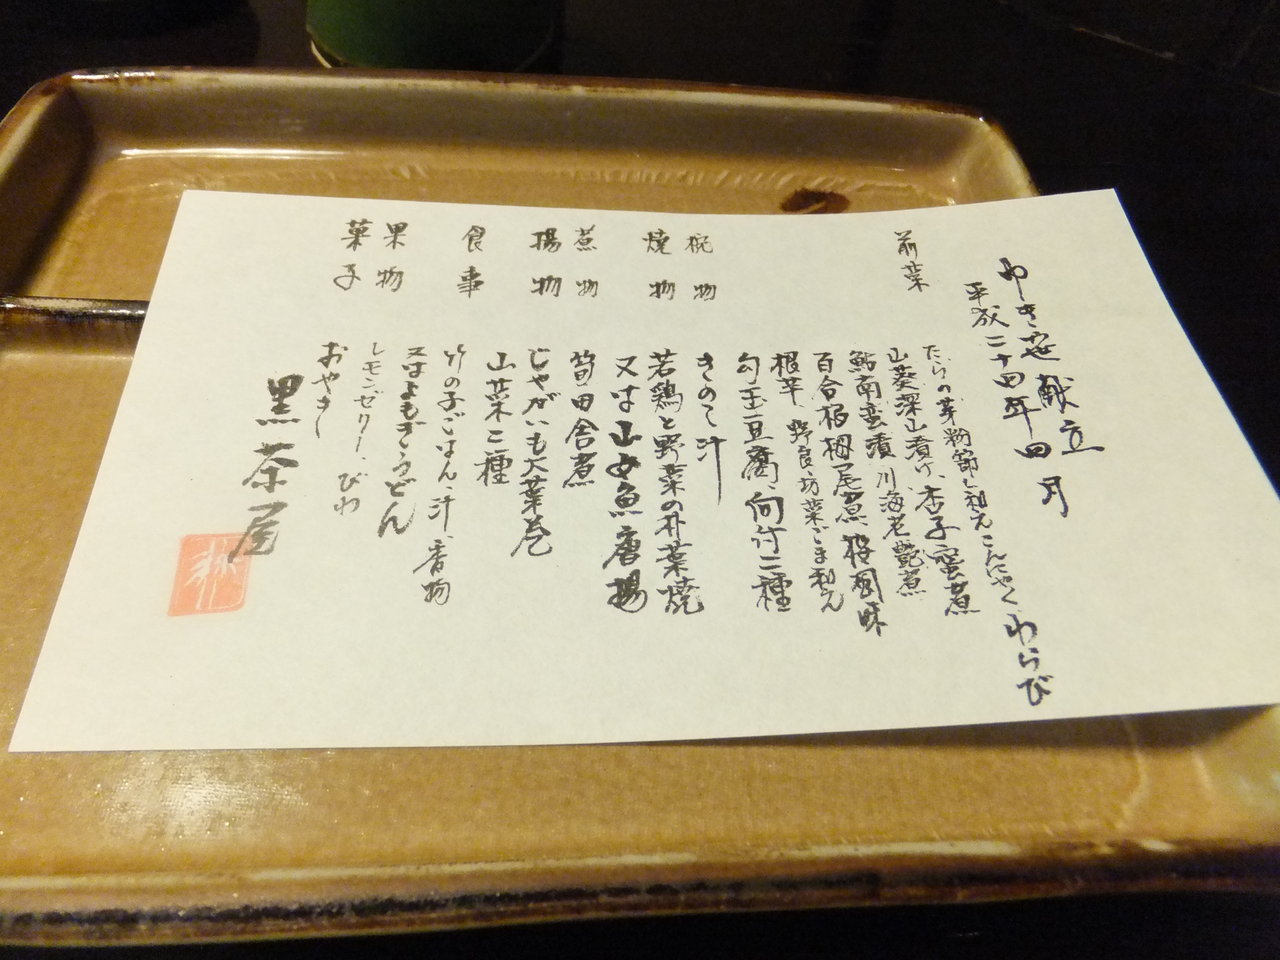 ゆき笹献立
平成二十四年四月
前菜
たらの芽粉節し和え こんにゃく わらび
山葵深山漬け、杏子蜜煮
鮎南蛮漬 川海老艶煮
百合根 煮
根芋、野良坊菜ごま和え
勾玉豆腐、向付二種
椀物
きのこ汁
焼物
若鶏と野菜の朴葉焼
又は山女魚唐揚
煮物
筍田舎煮
揚物
じゃがいも大葉巻
山菜二種
食事
竹の子ごはん、汁、香物
又はよもぎうどん
果物
レモンゼリー、びわ
菓子
おやき
黒茶屋